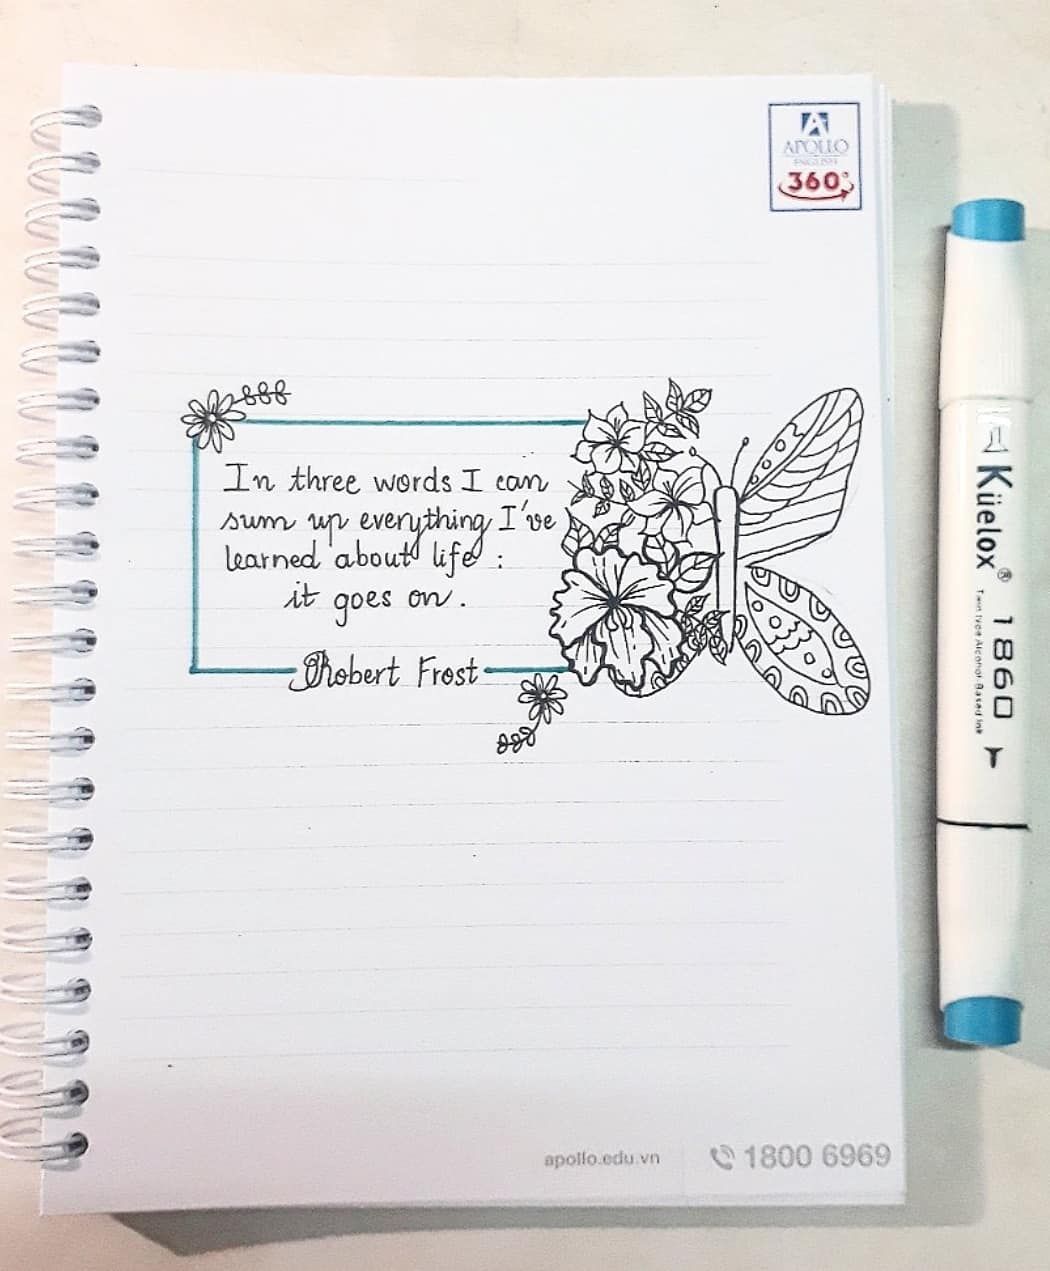 A
APOLLO
ENGLISH
360°
In three words I can
sum up everything I've
learned about life :
it goes on.
Robert Frost
Küelox®
Twin Type Alcohol Based Ink
1860
apollo.edu.vn
1800 6969